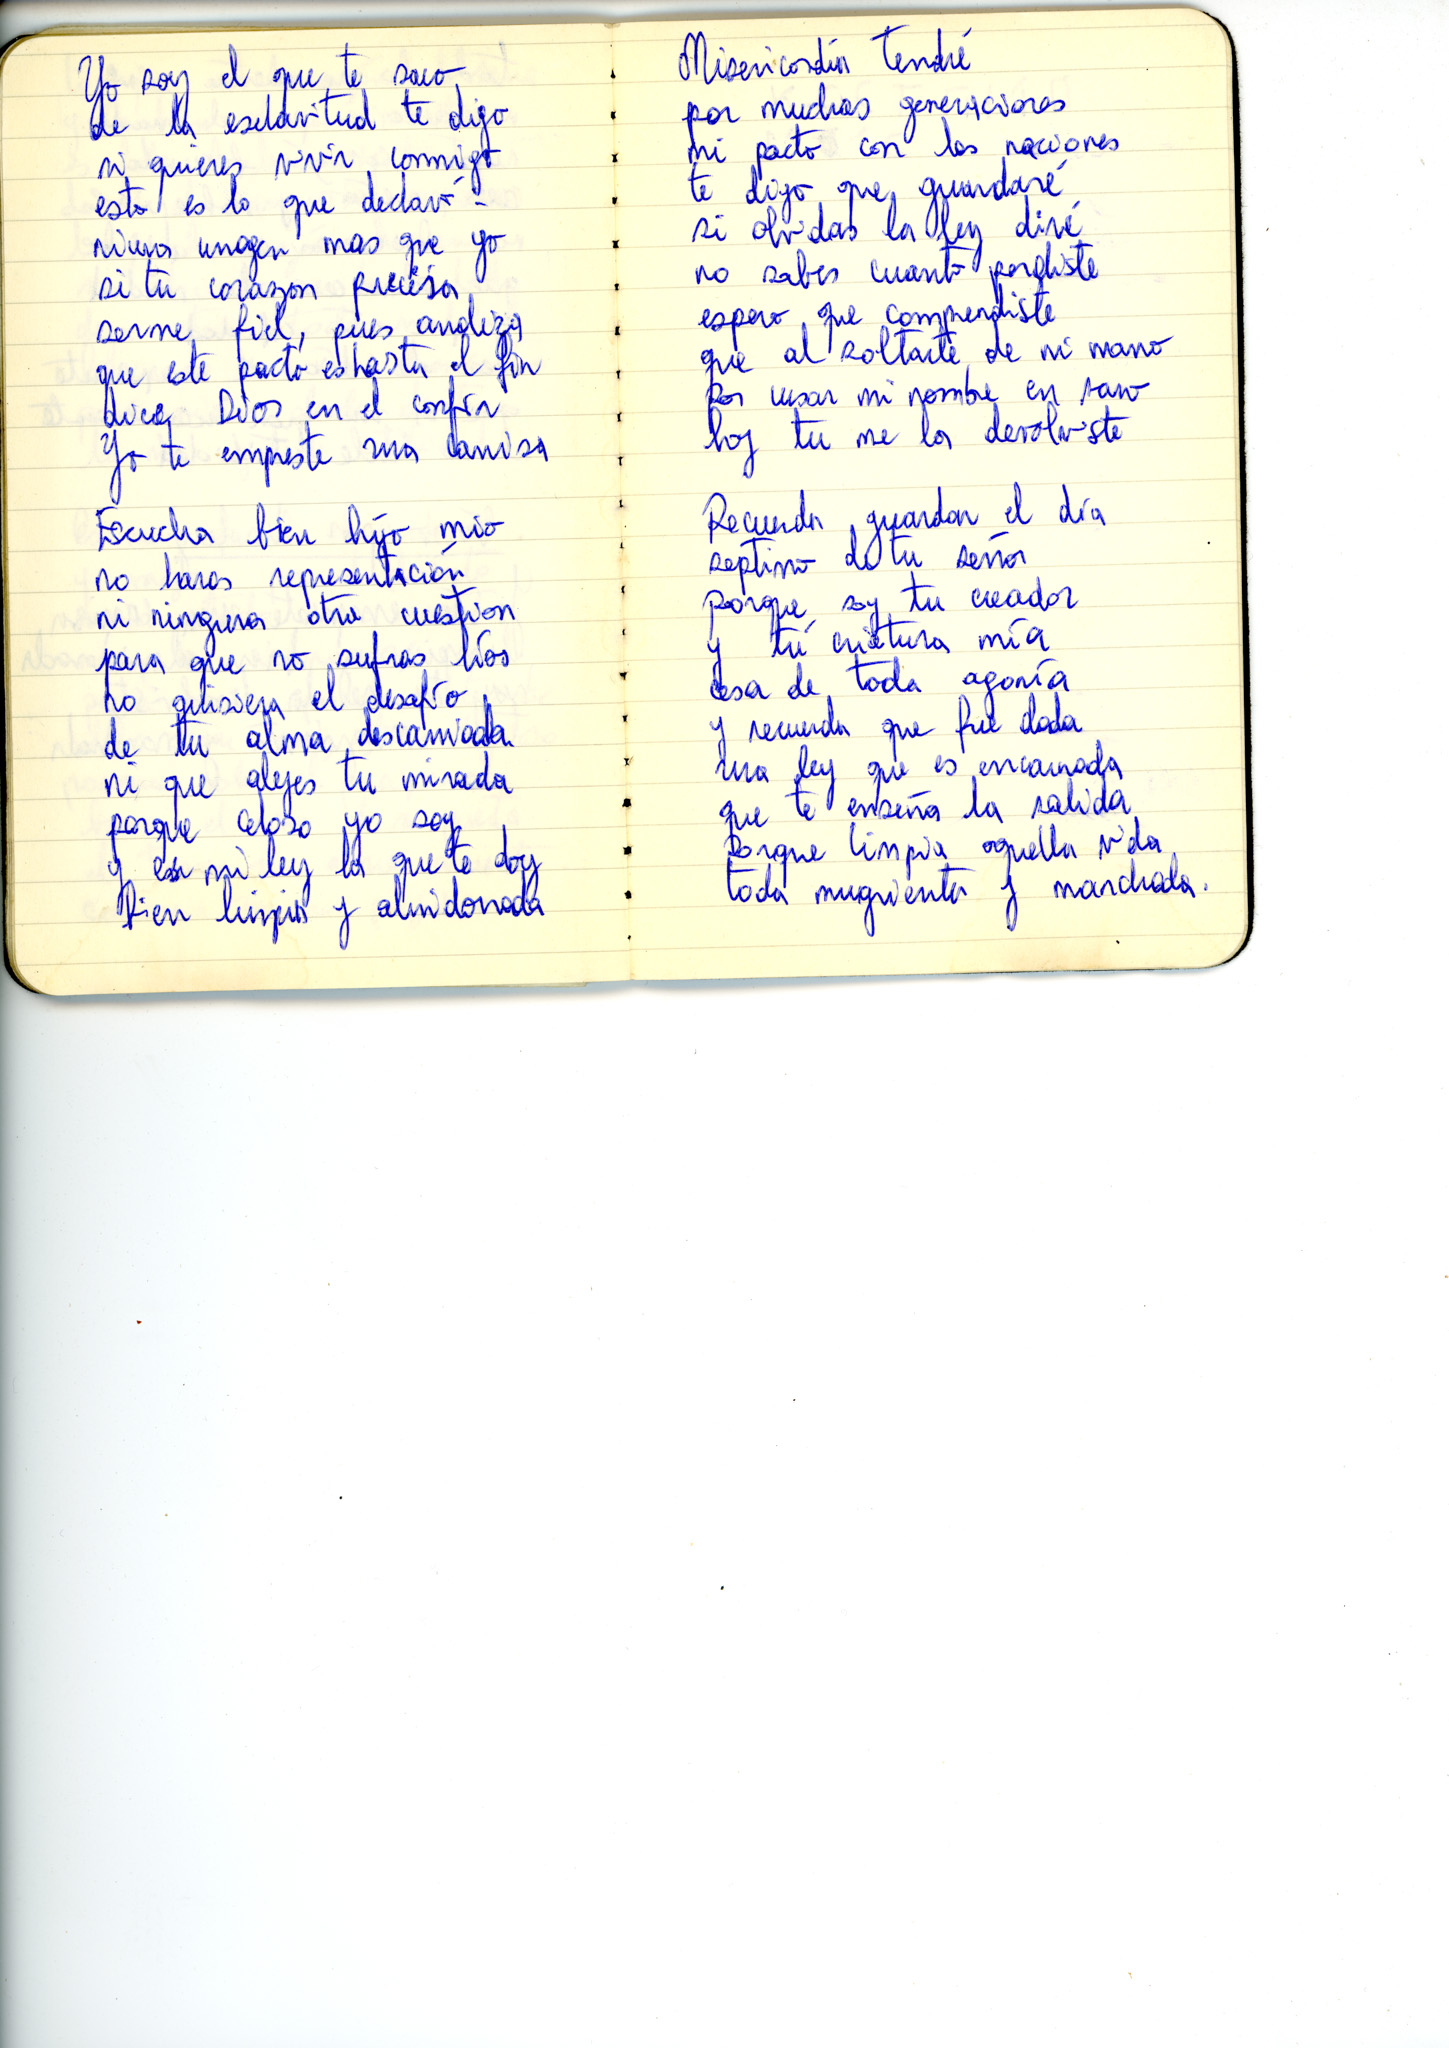 Yo soy el que te saco
de la esclavitud te digo
si quieres vivir conmigo
esto es lo que declaró -
nunca imagen mas que yo
si tu corazon precisa
serme fiel, pues analiza
que este pacto es hasta el fin
dice Dios en el confin
Yo te empreste una camisa
Escucha bien hijo mio
no haras representación
ni ninguna otra cuestion
para que no sufras líos
no quisiera el desafío
de tu alma descamisada
ni que alejes tu mirada
porque celoso yo soy
y es mi ley la que te doy
Bien limpia y almidonada
Misericordia tendré
por muchas generaciones
mi pacto con las naciones
te digo que guardaré
si olvidas la ley diré
no sabes cuanto perdiste
espero que comprendiste
que al soltarte de mi mano
por usar mi nombre en vano
hoy tu me la devolviste
Recuerda guardar el día
septimo de tu señor
porque soy tu creador
y tú criatura mía
cesa de toda agonía
y recuerda que fue dada
una ley que es encarnada
que te enseña la salida
porque limpia aquella vida
toda mugrienta y manchada.